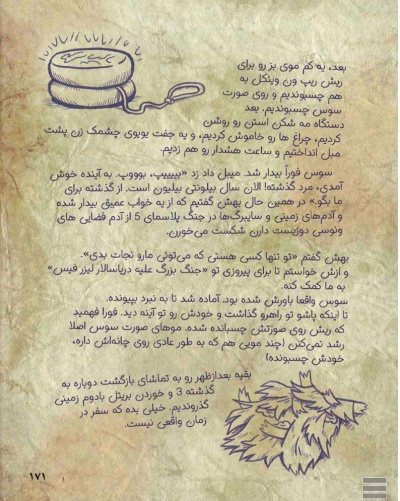 بعد، یه کم موی بز رو برای
ریش ریپ ون وینکل به
هم چسبوندیم و روی صورت
سوس چسبوندیم. بعد
دستگاه مه شکن استن رو روشن
کردیم، چراغ ها رو خاموش کردیم، و یه جفت یویوی چشمک زن پشت
مبل انداختیم و ساعت هشدار رو هم زدیم.
سوس فورا بیدار شد. میبل داد زد «بیبییپ، بوووپ. به آینده خوش
آمدی، مرد گذشته! الان سال بیلونتی بیلیون است. از گذشته برای
ما بگو.» در همین حال بهش گفتیم که از یه خواب عمیق بیدار شده
و آدم‌های زمینی و سایبرگ‌ها در جنگ پلاسمای 5 از آدم فضایی های
ونوسی دوزیست دارن شکست می‌خورن.
بهش گفتم «تو تنها کسی هستی که می‌تونی مارو نجات بدی».
و ازش خواستم تا برای پیروزی تو «جنگ بزرگ علیه دریاسالار لیزر فیس»
به ما کمک کنه.
سوس واقعا باورش شده بود. آماده شد تا به نبرد بپیونده.
تا اینکه پاشو تو راهرو گذاشت و خودش رو تو آینه دید. فورا فهمید
که ریش روی صورتش چسبانده شده. موهای صورت سوس اصلا
رشد نمی‌کنن (چند مویی هم که به طور عادی روی چانه‌اش داره،
خودش چسبونده)
بقیه بعدازظهر رو به تماشای بازگشت دوباره به
گذشته 3 و خوردن بریتل بادوم زمینی
گذروندیم. خیلی بده که سفر در
زمان واقعی نیست.
۱۷۱